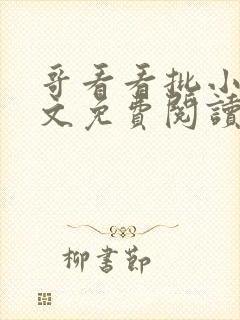 哥看看批小
文免費閱讀
柳書節